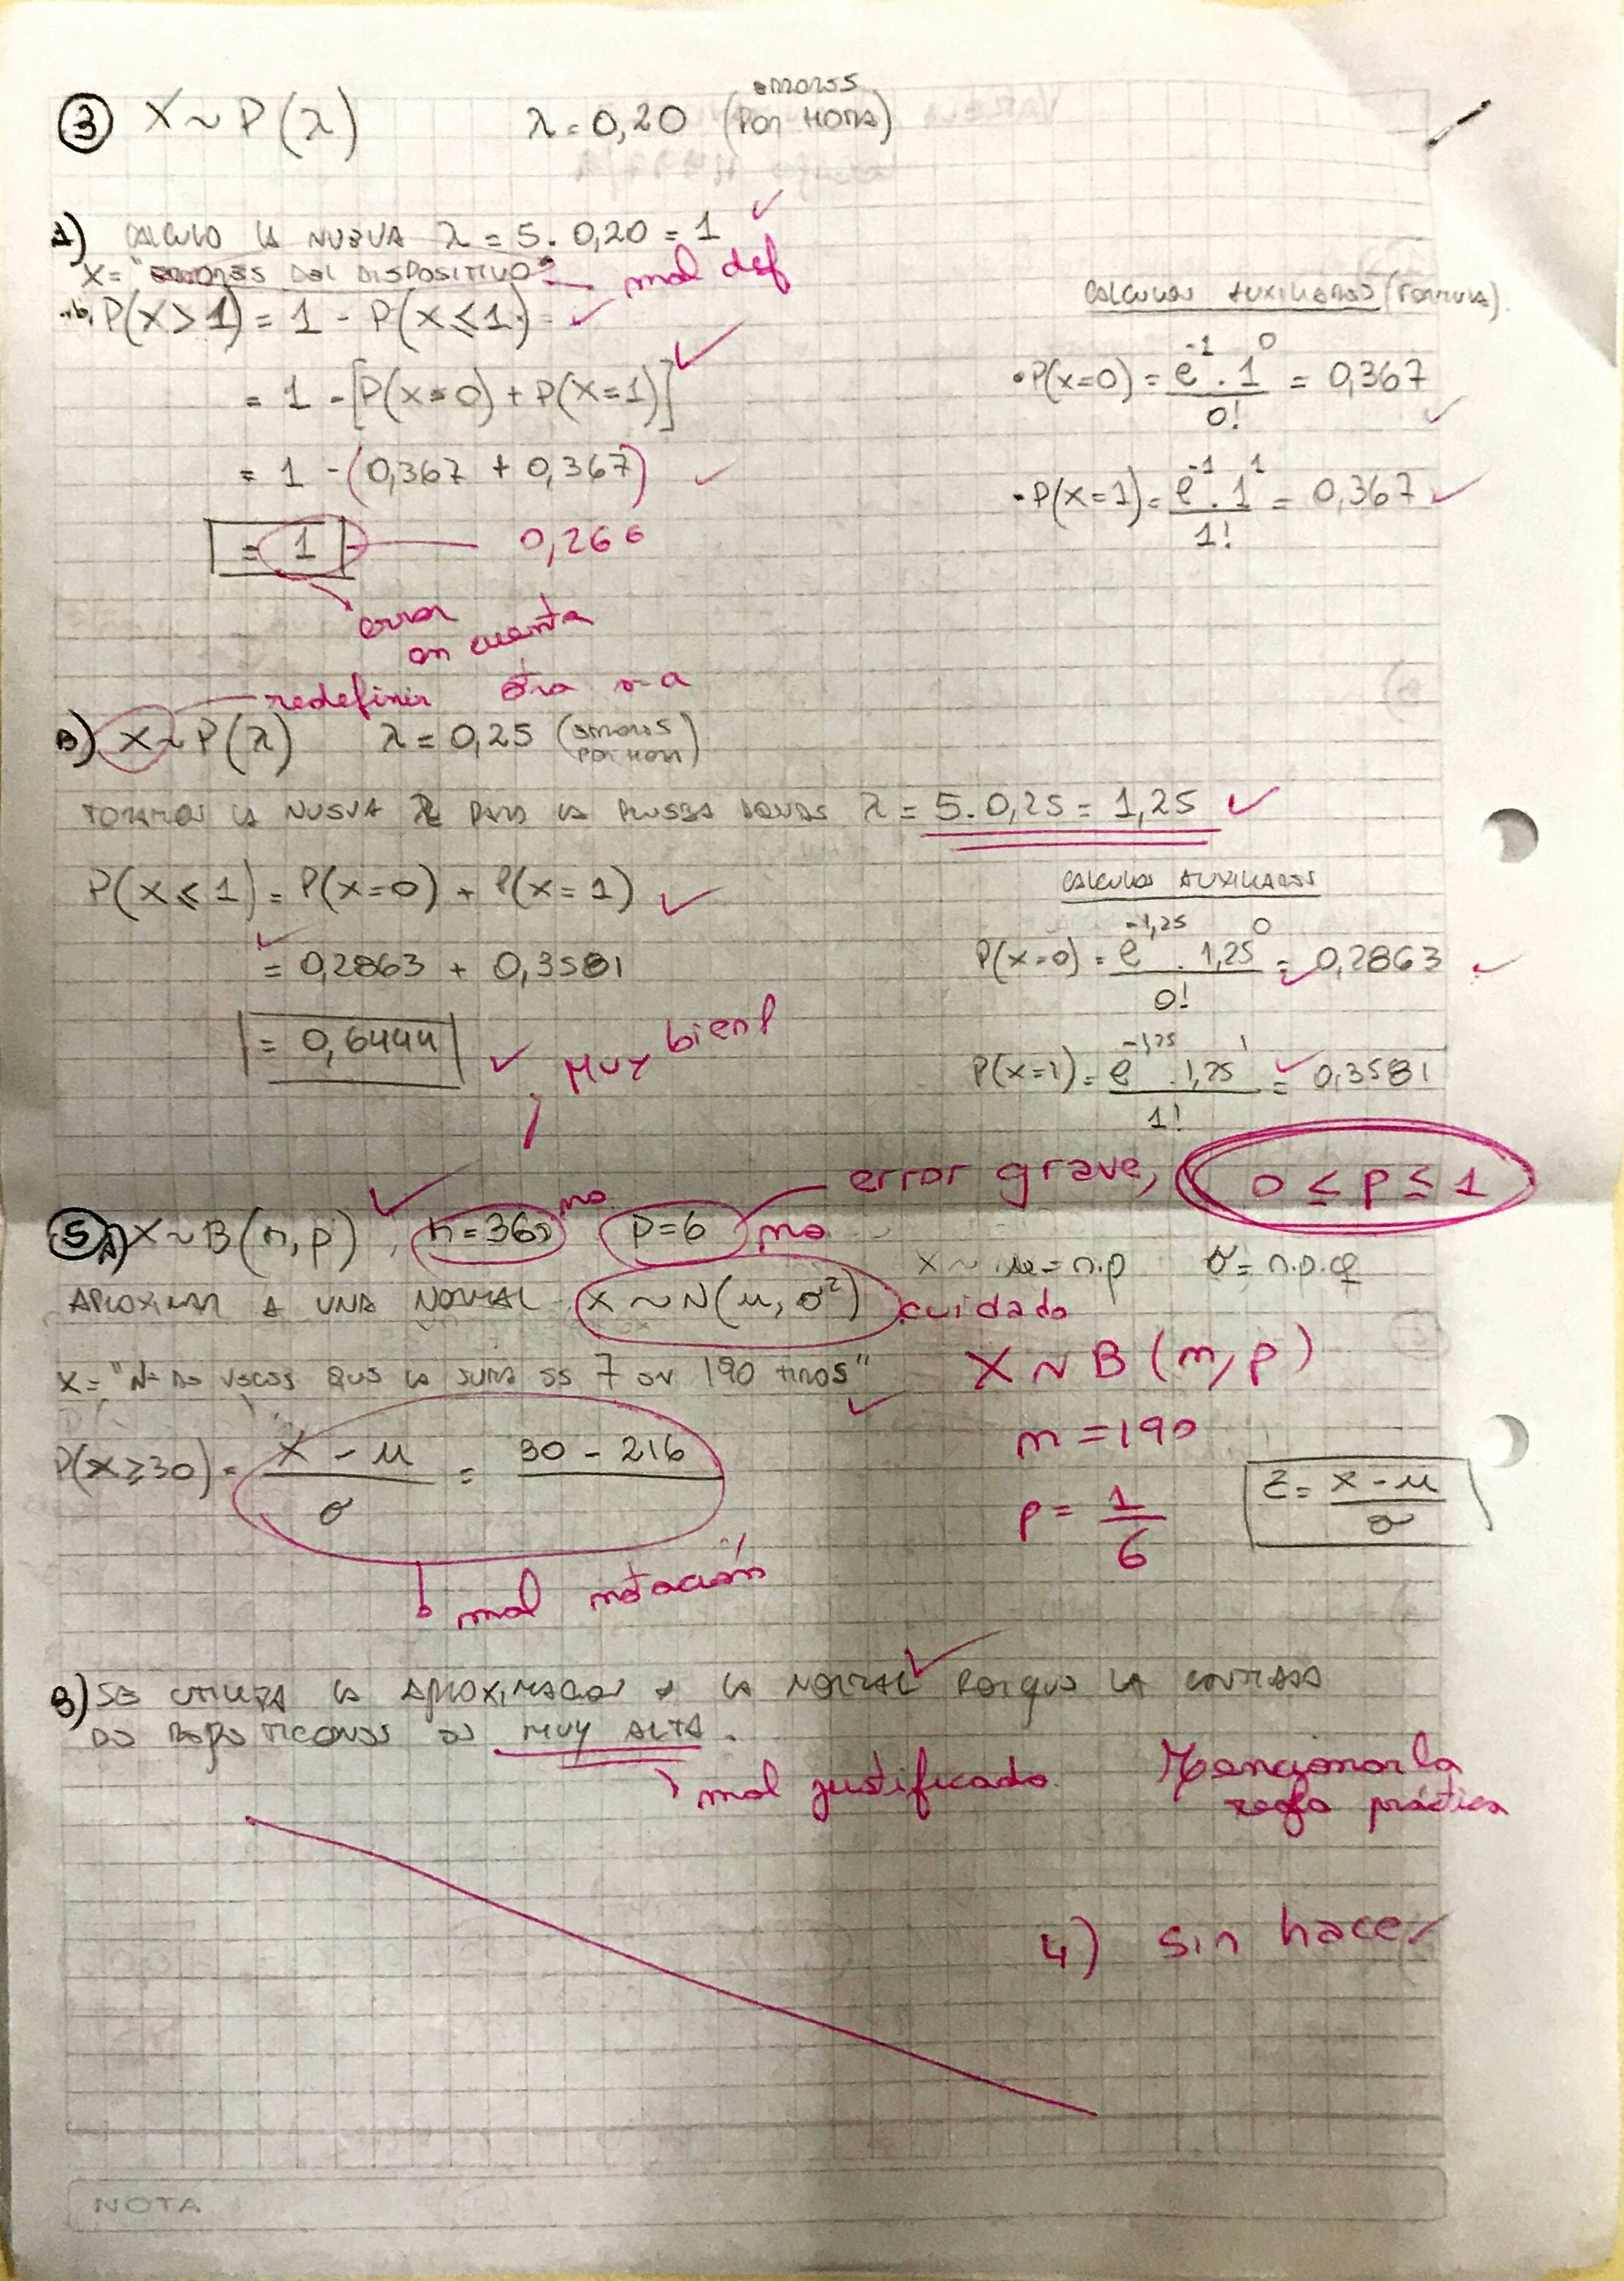 ③ X ~ P(λ)   λ = 0,20 (errores por hora)
A) CALCULO LA NUEVA λ = 5 . 0,20 = 1 ✓
X = "ERRORES DEL DISPOSITIVO" mal def
P(X > 1) = 1 - P(X ≤ 1) ✓
= 1 - [P(X=0) + P(X=1)] ✓
= 1 - (0,367 + 0,367) ✓
= 1   0,266
error
en cuenta
CALCULOS AUXILIARES (FORMULA).
• P(X=0) = e^-1 . 1^0 / 0! = 0,367 ✓
• P(X=1) = e^-1 . 1^1 / 1! = 0,367 ✓
redefinir otra v-a
B) X ~ P(λ)   λ = 0,25 (ERRORES POR HORA)
TOMAMOS LA NUEVA λ PARA LA PRUEBA λ = 5 . 0,25 = 1,25 ✓
P(X ≤ 1) = P(X=0) + P(X=1) ✓
✓ = 0,2863 + 0,3581
= 0,6444 ✓ MUY bien!
CALCULOS AUXILIARES
P(X=0) = e^-1,25 . 1,25^0 / 0! = 0,2863 ✓
P(X=1) = e^-1,25 . 1,25^1 / 1! = 0,3581 ✓
error grave, 0 ≤ p ≤ 1
⑤ A) X ~ B(n, p) ✓, n = 360 no   p = 6 no
X ~ μ = n.p   σ = n.p.q
APROXIMAR A UNA NORMAL X ~ N(μ, σ²) cuidado
X = "Nº DE VECES QUE LA SUMA ES 7 EN 190 TIROS" ✓
X ~ B(n, p)
n = 190
p = 1/6
P(X ≥ 30) = X - μ / σ = 30 - 216
mal notación
Z = X - μ / σ
B) SE UTILIZA LA APROXIMACION A LA NORMAL ✓ PORQUE LA CANTIDAD
DE ES MUY ALTA.
mal justificado   Mencionar la
regla práctica
4) sin hacer
NOTA